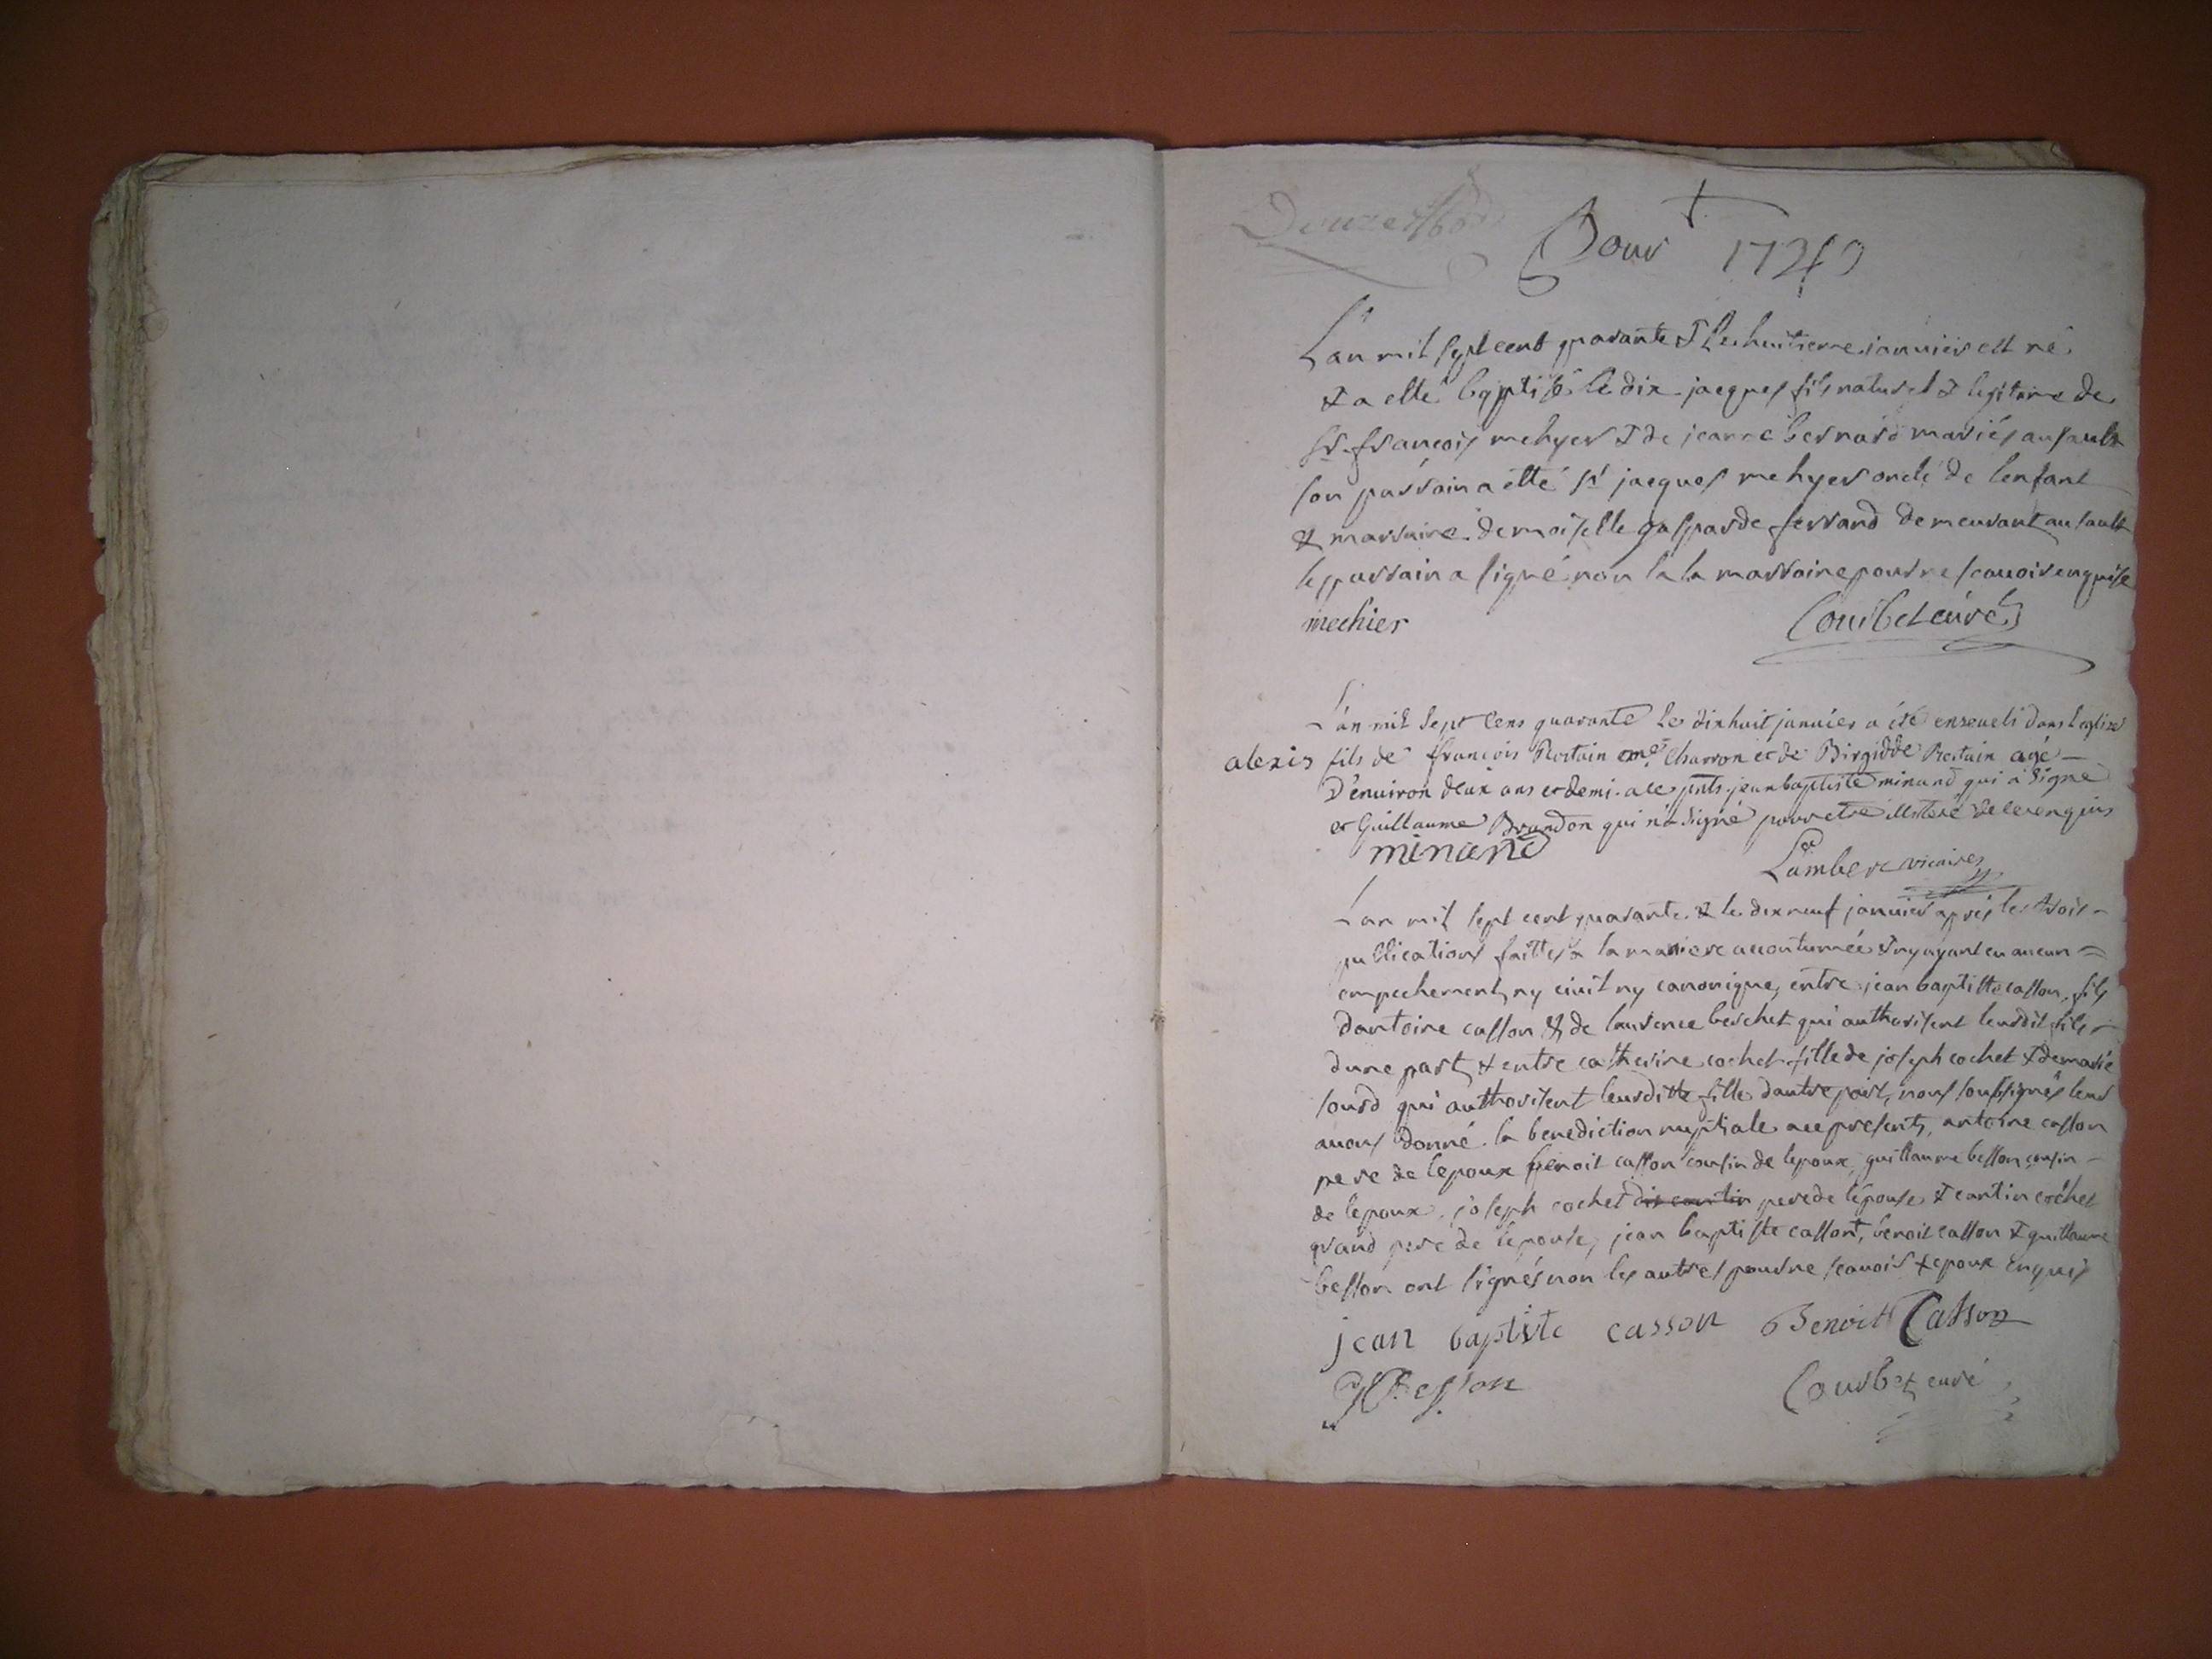 pour 1740
L'an mil sept cent quarante & le huitieme janvier est né
& a esté baptisé le dix jacques fils naturel & legitime de
sr françois mehyer & de jeanne bernard mariés au sault
son parrain a etté sr jacques mehyer oncle de lenfant
& marraine demoiselle gasparde ferrand demeurant au sault
le parrain a signé non la la marraine pour ne scavoir enquise
mechier Courbet curé
L'an mil sept cens quarante le dixhuit janvier a été enseveli dans l'eglise
alexis fils de françois Rostain me charron et de Birgidde Rostain agé
D'environ deux ans et demi. a ce pnts jean baptiste minand qui a signé
et Guillaume Brandon qui n'a signé pour etre illiteré de ce enquis
minand Lambert vicaire
Lan mil sept cent quarante & le dixneuf janvier apres les trois
publications faittes a la maniere accoutumée & ny ayant eu aucun
empechement, ny civil ny canonique, entre jean baptiste casson, fils
dantoine casson & de laurence berchet qui authorisent leurdit fils
dune part, & entre catherine cochet fille de joseph cochet & de marie
sourd qui authorisent leurditte fille dautre part, nous soussignés leur
avons donné la benediction nuptiale a ce presents, antoine casson
pere de lepoux benoit casson cousin de lepoux, guillaume besson cousin
de lepoux. joseph cochet pere de lépouse & cantin cochet
grand pere de lepouse, jean baptiste casson, benoit casson & guillaume
besson ont signés non les autres pour ne scavoir & epoux enquis
jean baptiste casson Benoit Casson
G Besson Courbet curé